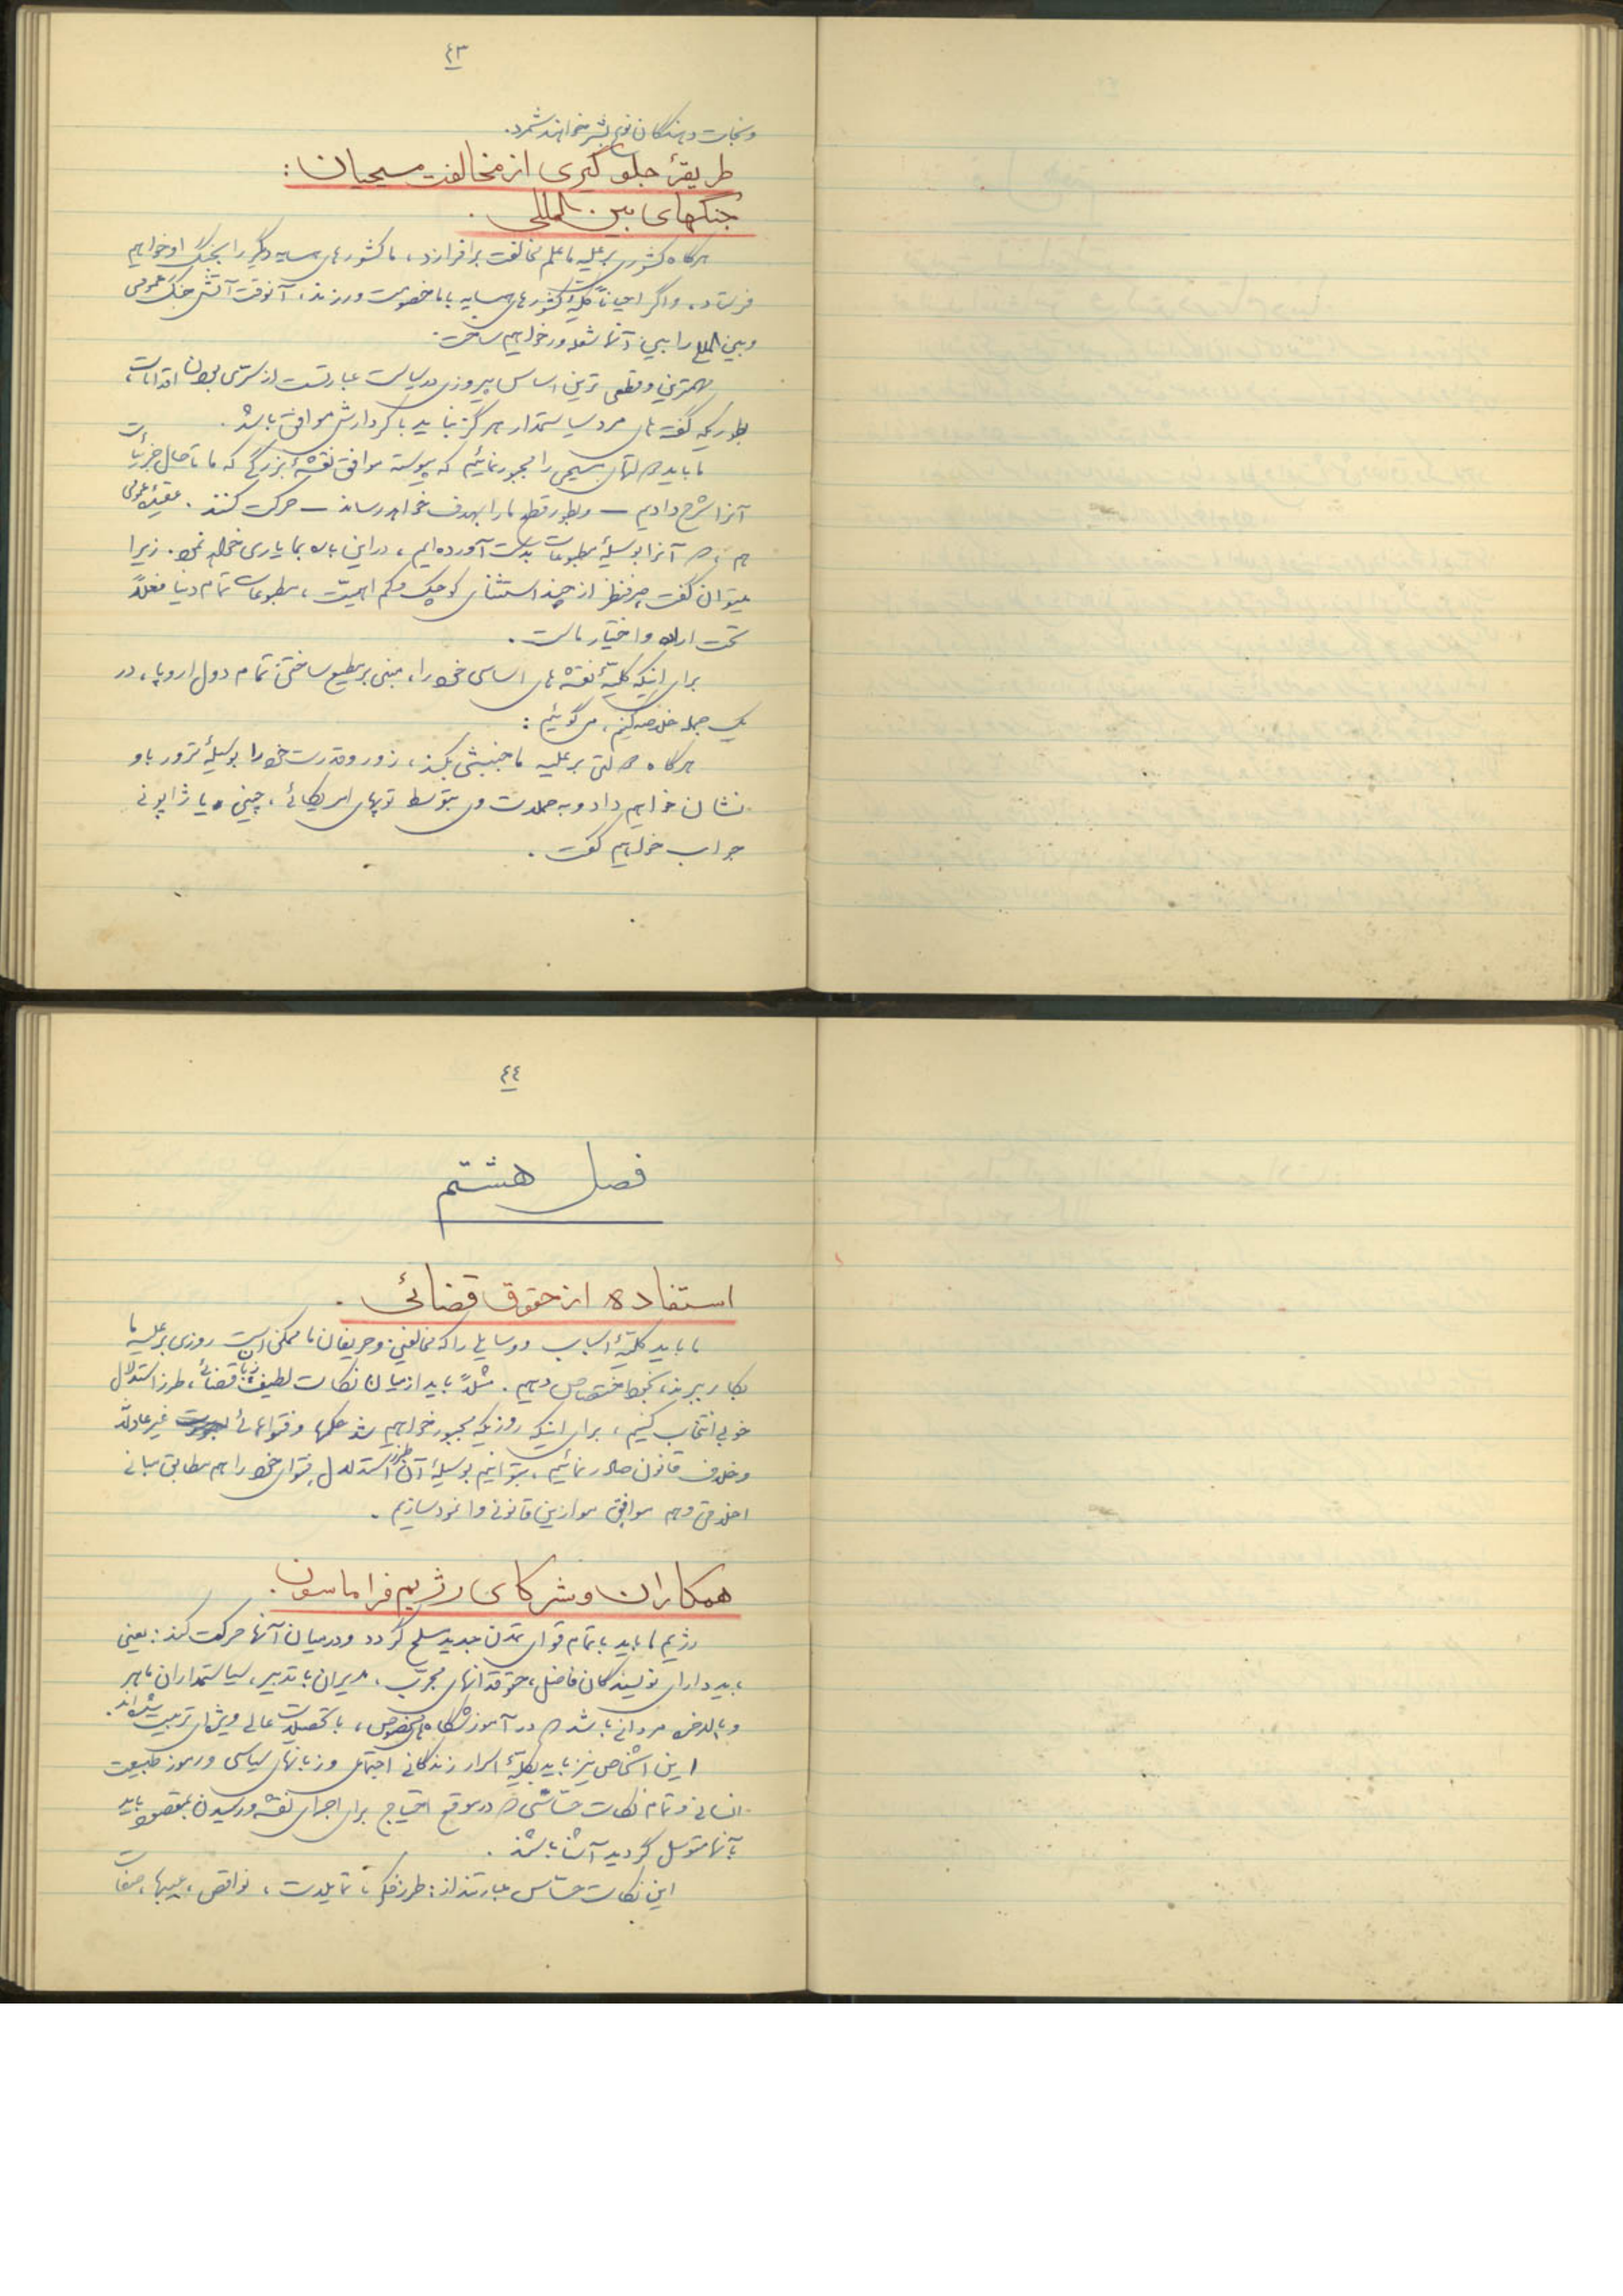 ٤٣
ونجات دهندگان نوع بشر خواهند شمرد.
طریقهٔ جلوگیری از مخالفت مسیحیان:
جنگهای بین‌المللی.
هرگاه کشوری بر علیه ما علم مخالفت برافرازد، ما کشورهای همسایه دیگر را بجنگ او خواهیم
فرستاد، و اگر احیاناً کلیهٔ کشورهای همسایه با ما خصومت ورزند، آنوقت آتش جنگ عمومی
و بین‌الملل را بین آنها شعله‌ور خواهیم ساخت.
مهمترین و قطعی‌ترین اساس پیروزی در سیاست عبارتست از سری بودن اقدامات،
بطوریکه گفته‌های مرد سیاستمدار هرگز نباید با کردارش موافق باشد.
ما باید دولتهای مسیحی را مجبور نمائیم که پیوسته موافق نقشهٔ بزرگی که ما تا حال جزئیات
آنرا شرح دادیم – و بطور قطع ما را بهدف خواهد رساند – حرکت کنند. عقیدهٔ عمومی
هم که آنرا بوسیلهٔ مطبوعات بدست آورده‌ایم، در این باره بما یاری خواهد نمود. زیرا
میتوان گفت صرفنظر از چند استثنای کوچک و کم اهمیت، مطبوعات تمام دنیا فعلاً
تحت اراده و اختیار ماست.
برای اینکه کلیهٔ نقشه‌های اساسی خود را، مبنی بر مطیع ساختن تمام دول اروپا، در
یک جمله خلاصه کنیم، می‌گوئیم:
هرگاه دولتی بر علیه ما جنبشی بکند، زور و قدرت خود را بوسیلهٔ ترور باو
نشان خواهیم داد و به حملات وی بتوسط توپهای امریکائی، چینی و یا ژاپونی
جواب خواهیم گفت.
٤٤
فصل هشتم
استفاده از حقوق قضائی.
ما باید کلیهٔ اسباب و وسایلی را که مخالفین و حریفان ما ممکن است روزی بر علیه ما
بکار ببرند، بخود اختصاص دهیم. مثلاً باید از میان نکات لطیف زبان قضائی، طرز استدلال
خوبی انتخاب کنیم، برای اینکه روزیکه مجبور خواهیم شد حکمها و فتواهائی غیر عادلانه
و خلاف قانون صادر نمائیم، بتوانیم بوسیلهٔ آن طرز استدلال، فتوای خود را هم مطابق مبانی
اخلاقی و هم موافق موازین قانونی وانمود سازیم.
همکاران و شرکای رژیم فراماسون.
رژیم ما باید با تمام قوای تمدن جدید مسلح گردد و در میان آنها حرکت کند: یعنی
باید دارای نویسندگان فاضل، حقوقدانهای مجرب، مدیران با تدبیر، سیاستمداران ماهر
و بالاخره مردانی باشد که در آموزشگاه‌های مخصوص، با تحصیلات عالی ویژه‌ای تربیت شده‌اند.
این اشخاص نیز باید بکلیهٔ اسرار زندگانی اجتماعی و زبانهای سیاسی و رموز طبیعت
انسانی و تمام نکات حساسی که در موقع احتیاج برای اجرای نقشه و رسیدن بمقصود باید
بآنها متوسل گردید آشنا باشند.
این نکات حساس عبارتند از: طرز فکر، تمایلات، نواقص، عیبها، صفات